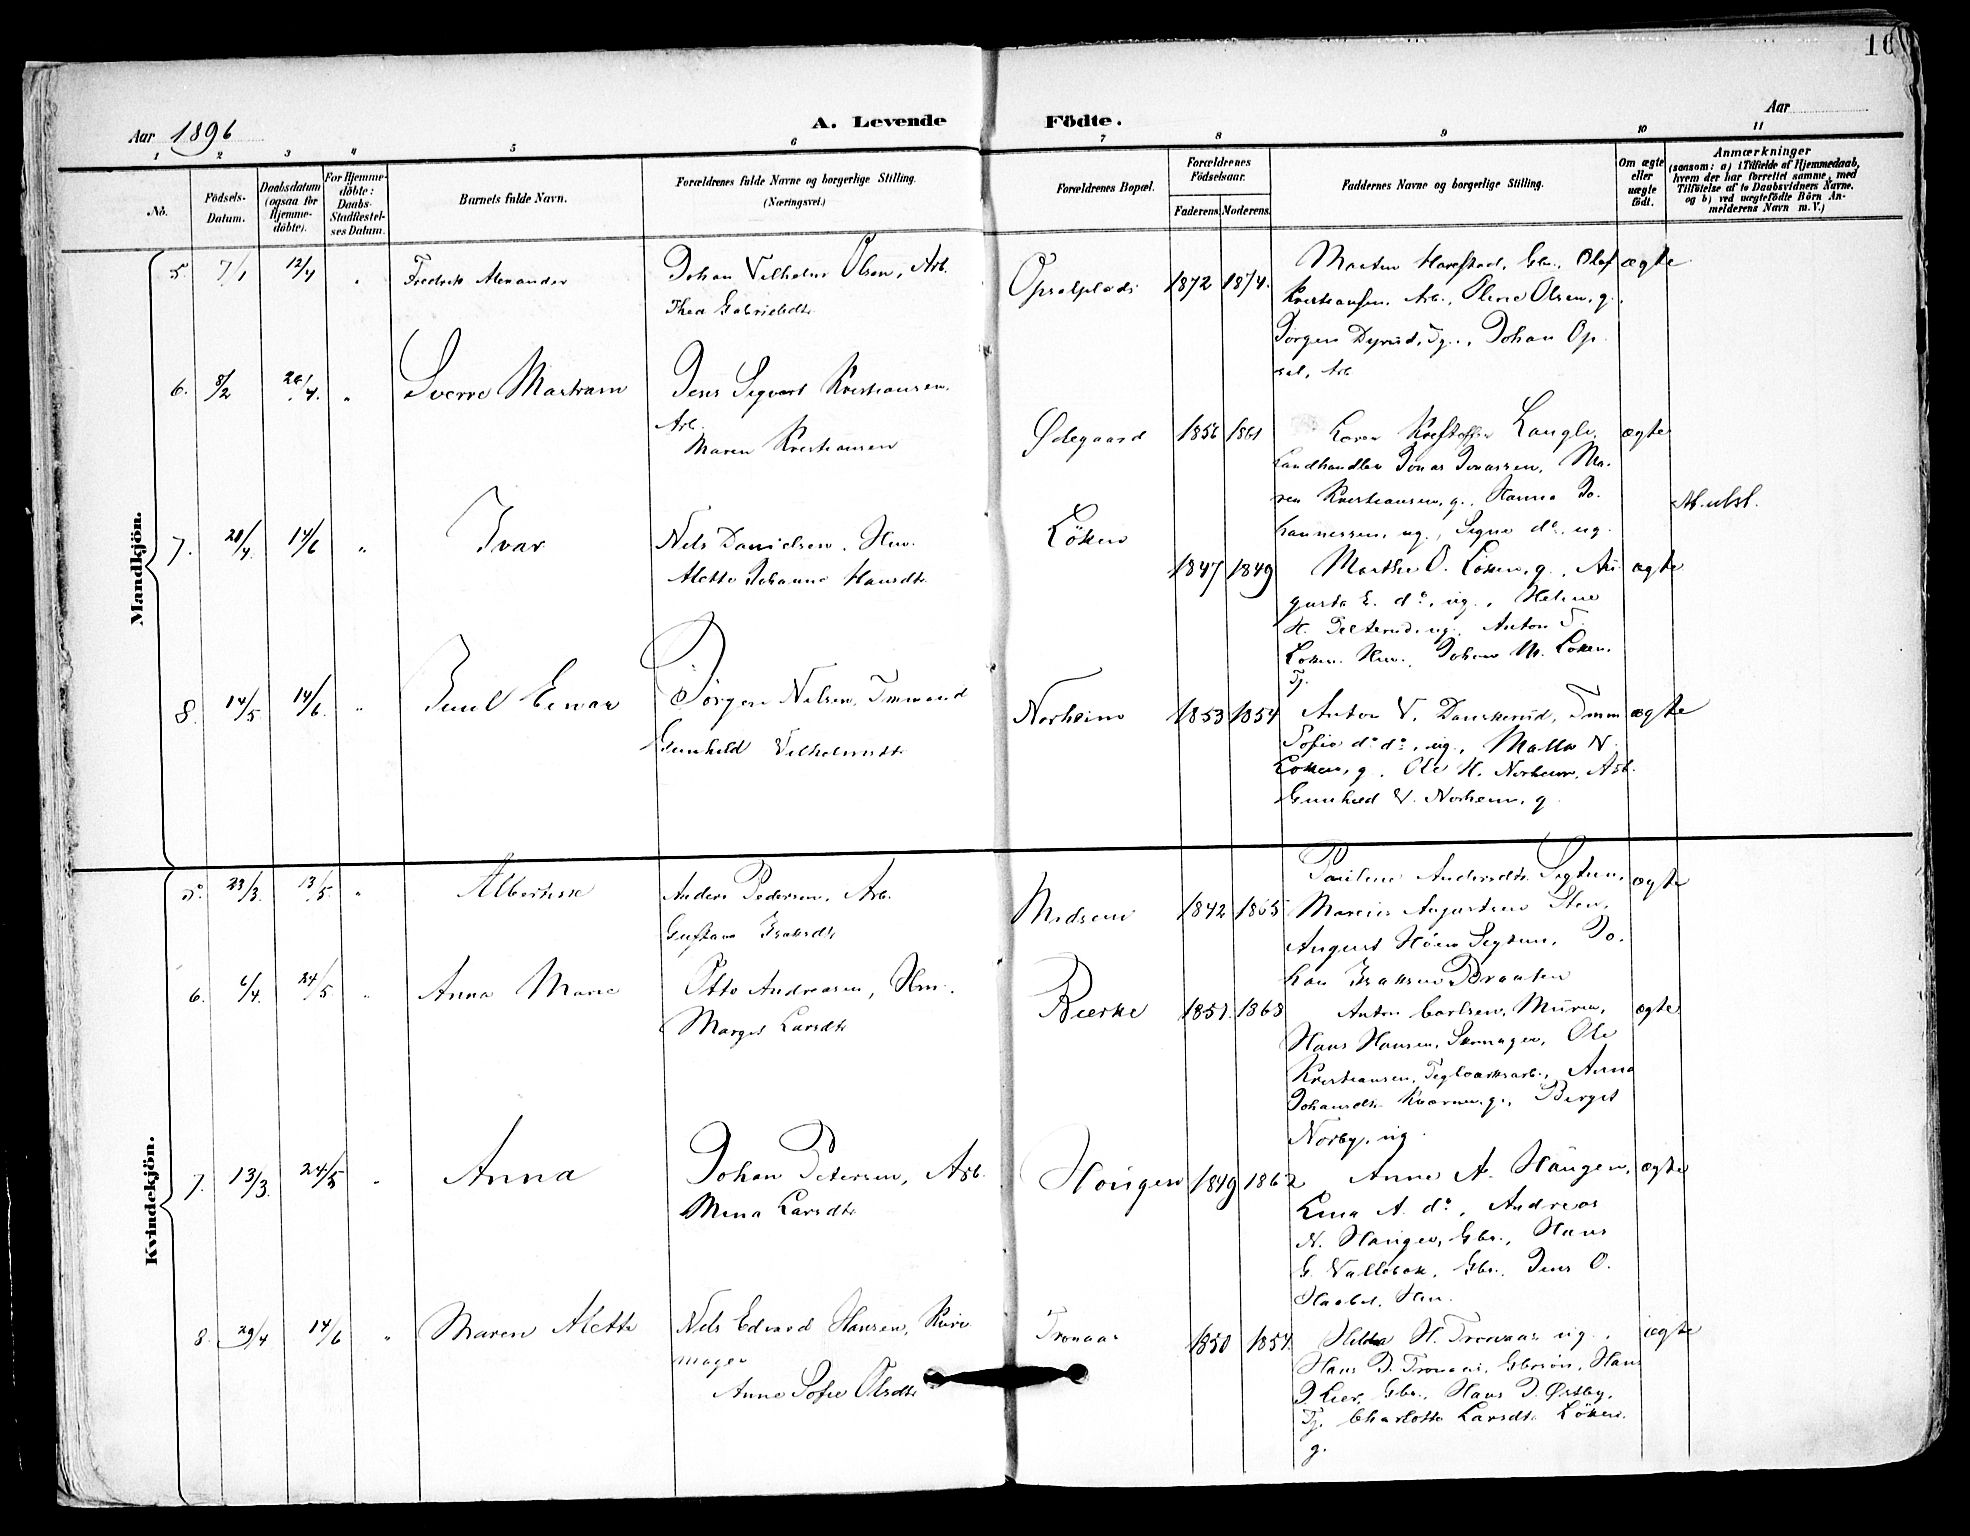 10
Aar 1896
A. Levende Födte.
Aar
1 2 3 4 5 6 7 8 9 10 11
No.
Födsels-
Datum.
Daabsdatum
(ogsaa for
Hjemme-
döbte).
For Hjemme-
döbte:
Daabs-
Stadfæstel-
ses Datum.
Barnets fulde Navn.
Forældrenes fulde Navne og borgerlige Stilling.
(Næringsvei.)
Forældrenes Bopæl.
Forældrenes
Födselsaar.
Faderens. Moderens.
Faddernes Navne og borgerlige Stilling.
Om ægte
eller
uægte
födt.
Anmærkninger
(saasom: a) i Tilfælde af Hjemmedaab,
hvem der har forrettet samme, med
Tilföielse af to Daabsvidners Navne.
og b) ved uægtefödte Börn An-
melderens Navn m. V.)
Mandkjön.
5. 7/1 12/4 " Fredrik Alexander
Johan Vilhelm Olsen, Arb.
Thea Gabrielsdt.
Opsalplads 1872 1874.
Morten Harestad, Gbr., Olaf
Kristiansen, Arb., Oline Olsen, g.,
Jörgen Dyrud, Tj., Johan Op-
sal, Arb.
ægte
6. 8/2 26/4. " Sverre Martram
Jens Sigvart Kristiansen,
Arb.
Maren Kristiansen
Ödegaard 1856 1861
Karen Kristoffer Langli,
Landhandler Jonas Jonassen, Ma-
ren Kristiansen, g., Hanna Jo-
hannessen, ug., Signe do., ug.
ægte
7. 28/4. 14/6 " Ivar
Nils Danielsen, Hm.
Mette Johanne Hansdt.
Löken
1847 1849
Marthe O. Löken, g., Au-
gusta E. do., ug., Helene
H. ug., Anton T.
Löken, Hm., Johan M. Löken,
Tj.
ægte
Ab. utst.
8. 14/5 14/6. " Juul Einar
Jörgen Nilsen, Tmmand
Gunhild Vilhelmsdt.
Norheim 1853 1854
Anton V. Danskerud, Tmm
Sofie do. do., ug., Malla N.
Löken, g., Ole H. Norheim, Arb.
Gunhild V. Norheim, g.
ægte
Kvindekjön.
5. 23/3. 13/5. " Albertine
Anders Pedersen, Arb.
Gustava Isaksdt.
Midseni 1842 1865
Pauline Andersdt. Sigtun,
Marius Augustsen Sten,
August Höen Sigtun, Jo-
han Isaksen Braaten
ægte
6. 6/4. 24/5 " Anna Marie
Otto Andreasen, Hm.
Margit Larsdt.
Bierke 1857. 1863
Anton Carlsen, Murer,
Hans Hansen, Skomager, Ole
Kristiansen, Teglværksarb., Anna
Johansdt. Kværner, g., Birgit
Norby, ug.
ægte
7. 13/3. 24/5 " Anna
Johan Petersen, Arb.
Mina Larsdt.
Haugen 1849 1862
Anne A. Haugen,
Lina A. do., Andreas
N. Haugen, Gbr., Hans
G. Vallebæk, Gbr., Jens O.
Haabet, Hm.
ægte
8. 29/4 14/6 " Maren Mette
Nils Edvard Hansen, Kurv-
mager
Anne Sofie Olsdt.
Tronaas 1850 1854.
Hilda H. Tronaas, ug.,
Hans J. Tronaas, Gbrsön, Hans
J. Lier, Gbr., Hans J. Østby,
Tj. Charlotte Larsdt. Löken,
g.
ægte